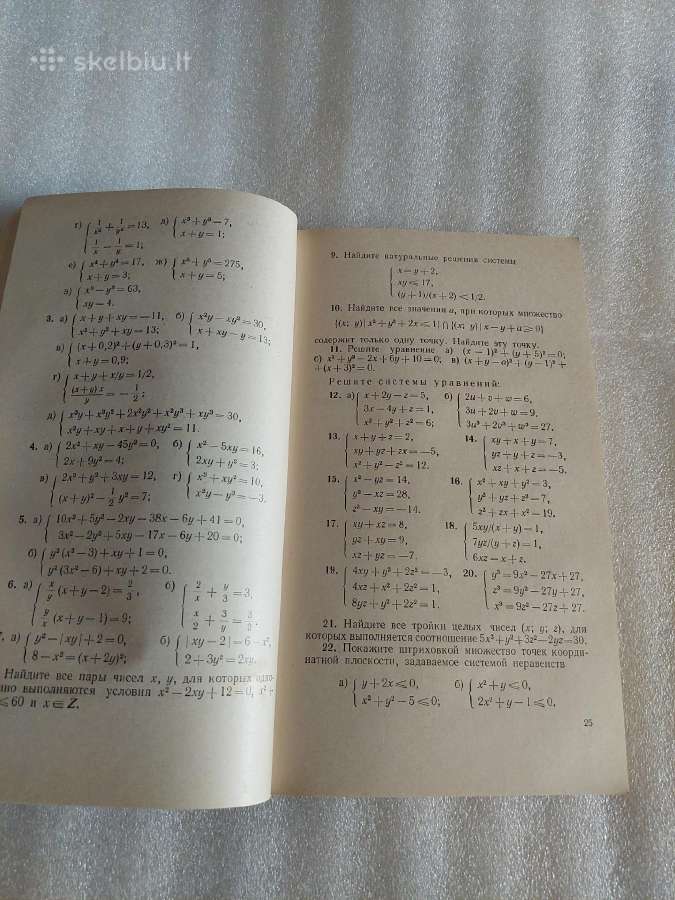 skelbiu.lt
г) { 1/x² + 1/y² = 13, д) { x³ + y³ = 7,
1/x − 1/y = 1; x + y = 1;
е) { x⁴ + y⁴ = 17, ж) { x⁵ + y⁵ = 275,
x + y = 3; x + y = 5;
з)
xy = 4.
3. а) { x + y + xy = −11, б) { x²y − xy² = 30,
x² + y² + xy = 13; x + xy − y = 13;
в) { (x + 0,2)² + (y + 0,3)² = 1,
x + y = 0,9;
г) { x + y + x/y = 1/2,
(x + y) x / y = − 1/2;
д) { x³y + x³y² + 2x²y² + x²y³ + xy³ = 30,
x²y + xy + x + y + xy² = 11.
4. а) { 2x² + xy − 45y² = 0, б) { x² − 5xy = 16,
2x + 9y² = 4; 2xy + y² = 3;
в) { 2x² + y² + 3xy = 12, г) { x² + xy² = 10,
(x + y)² − 1/2 y² = 7; x²y − y³ = −3.
5. а) { 10x² + 5y² − 2xy − 38x − 6y + 41 = 0,
3x² − 2y² + 5xy − 17x − 6y + 20 = 0;
б) { y² (x² − 3) + xy + 1 = 0,
y² (3x² − 6) + xy + 2 = 0.
6. а) { x/y (x + y − 2) = 2/3, б) { 2/x + y/3 = 3,
y/x (x + y − 1) = 9; x/2 + 3/y = 3/2.
а) { y² − |xy| + 2 = 0, б) { |xy − 2| = 6 − x²,
8 − x² = (x + 2y)²; 2 + 3y² = 2xy.
Найдите все пары чисел x, y, для которых одно-
но выполняются условия x² − 2xy + 12 = 0, x² +
⩽ 60 и x ∈ Z.
9. Найдите натуральные решения системы
{ x = y + 2,
xy ⩽ 17,
(y + 1)/(x + 2) < 1/2.
10. Найдите все значения a, при которых множество
{(x; y) | x² + y² + 2x ⩽ 1} ∩ {(x; y) | x − y + a ⩾ 0}
содержит только одну точку. Найдите эту точку.
11. Решите уравнение а) (x − 1)² + (y + 5)² = 0;
б) x² + y² − 2x + 6y + 10 = 0; в) (x + y − 5)² + (y − 1)² +
+ (x + 3)² = 0.
Решите системы уравнений:
12. а) { x + 2y − z = 5, б) { 2u + v + w = 6,
3x − 4y + z = 1, 3u + 2v + w = 9,
x² + y² + z² = 6; 3u³ + 2v³ + w³ = 27.
13. { x + y + z = 2, 14. { xy + x + y = 7,
xy + yz + zx = −5, yz + y + z = −3,
x² + y² − z² = 12. xz + x + z = −5.
15. { x² − yz = 14, 16. { x² + xy + y² = 3,
y² − xz = 28, y² + yz + z² = 7,
z² − xy = −14. z² + zx + x² = 19.
17. { xy + xz = 8, 18. { 5xy/(x + y) = 1,
yz + xy = 9, 7yz/(y + z) = 1,
xz + yz = −7. 6xz = x + z.
19. { 4xy + y² + 2z² = −3, 20. { y³ = 9x² − 27x + 27,
4xz + x² + 2z² = 1, z³ = 9y² − 27y + 27,
8yz + y² + 2z² = 1. x³ = 9z² − 27z + 27.
21. Найдите все тройки целых чисел (x; y; z), для
которых выполняется соотношение 5x² + y² + 3z² − 2yz = 30.
22. Покажите штриховкой множество точек коорди-
натной плоскости, задаваемое системой неравенств
а) { y + 2x ⩽ 0, б) { x² + y ⩽ 0,
x² + y² − 5 ⩽ 0; 2x² + y − 1 ⩽ 0.
25